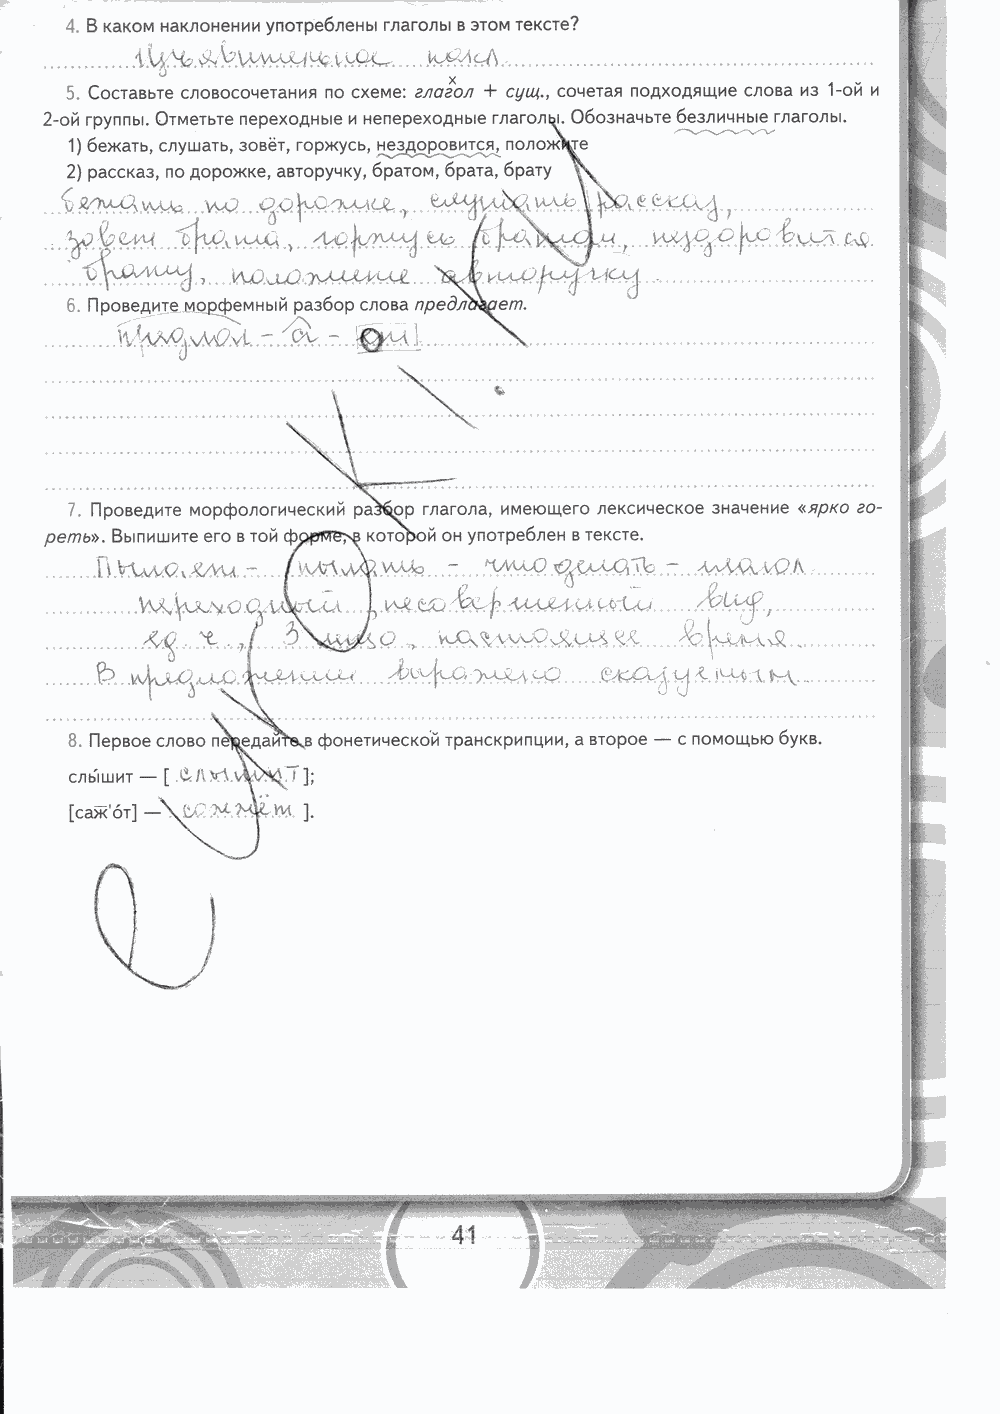 4. В каком наклонении употреблены глаголы в этом тексте?
Изъявительное накл.
5. Составьте словосочетания по схеме: глагол + сущ., сочетая подходящие слова из 1-ой и
2-ой группы. Отметьте переходные и непереходные глаголы. Обозначьте безличные глаголы.
1) бежать, слушать, зовёт, горжусь, нездоровится, положите
2) рассказ, по дорожке, авторучку, братом, брата, брату
бежать по дорожке, слушать рассказ,
зовет брата, горжусь братом, нездоровится
брату, положите авторучку.
6. Проведите морфемный разбор слова предлагает.
7. Проведите морфологический разбор глагола, имеющего лексическое значение «ярко го-
реть». Выпишите его в той форме, в которой он употреблен в тексте.
Пылает - пылать - что делать - глагол
переходный, несовершенный вид,
ед. ч., 3 лицо, настоящее время.
В предложении выражено сказуемым
8. Первое слово передайте в фонетической транскрипции, а второе — с помощью букв.
слы́шит — [ слышит ];
[саж̅'о́т] — сожжёт ].
еуроки.ру
41